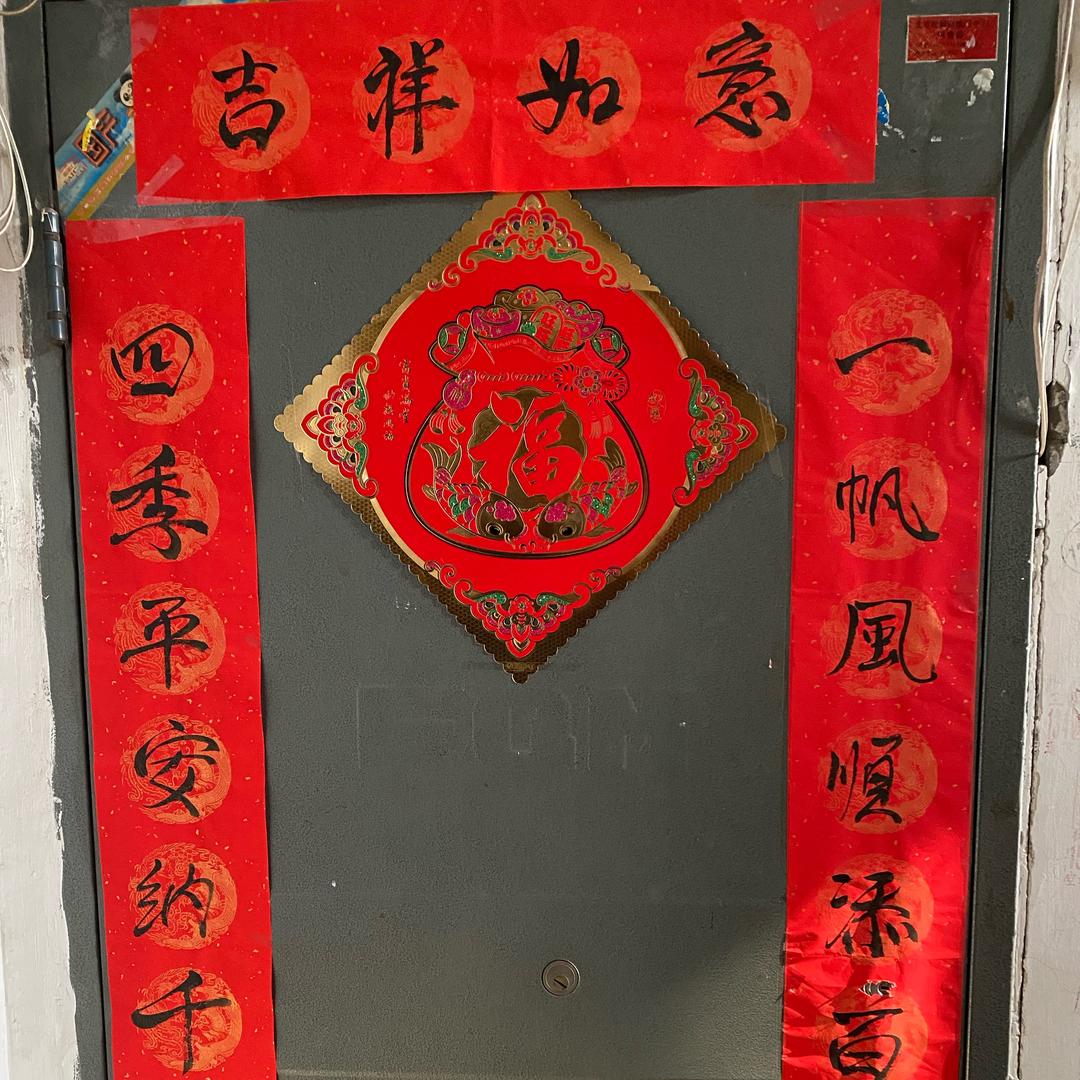 吉祥如意
一帆風順添百
四季平安納千
福